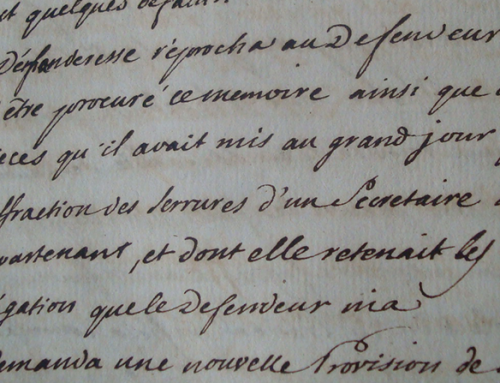 t quelques defaut
Défenderesse réprocha au Defendeur
être procuré ce memoire ainsi que
ieces qu'il avait mis au grand jour
ffraction des serrures d'un Secretaire
partenant, et dont elle retenait les
égation que le Defendeur nia
emanda une nouvelle Provision de